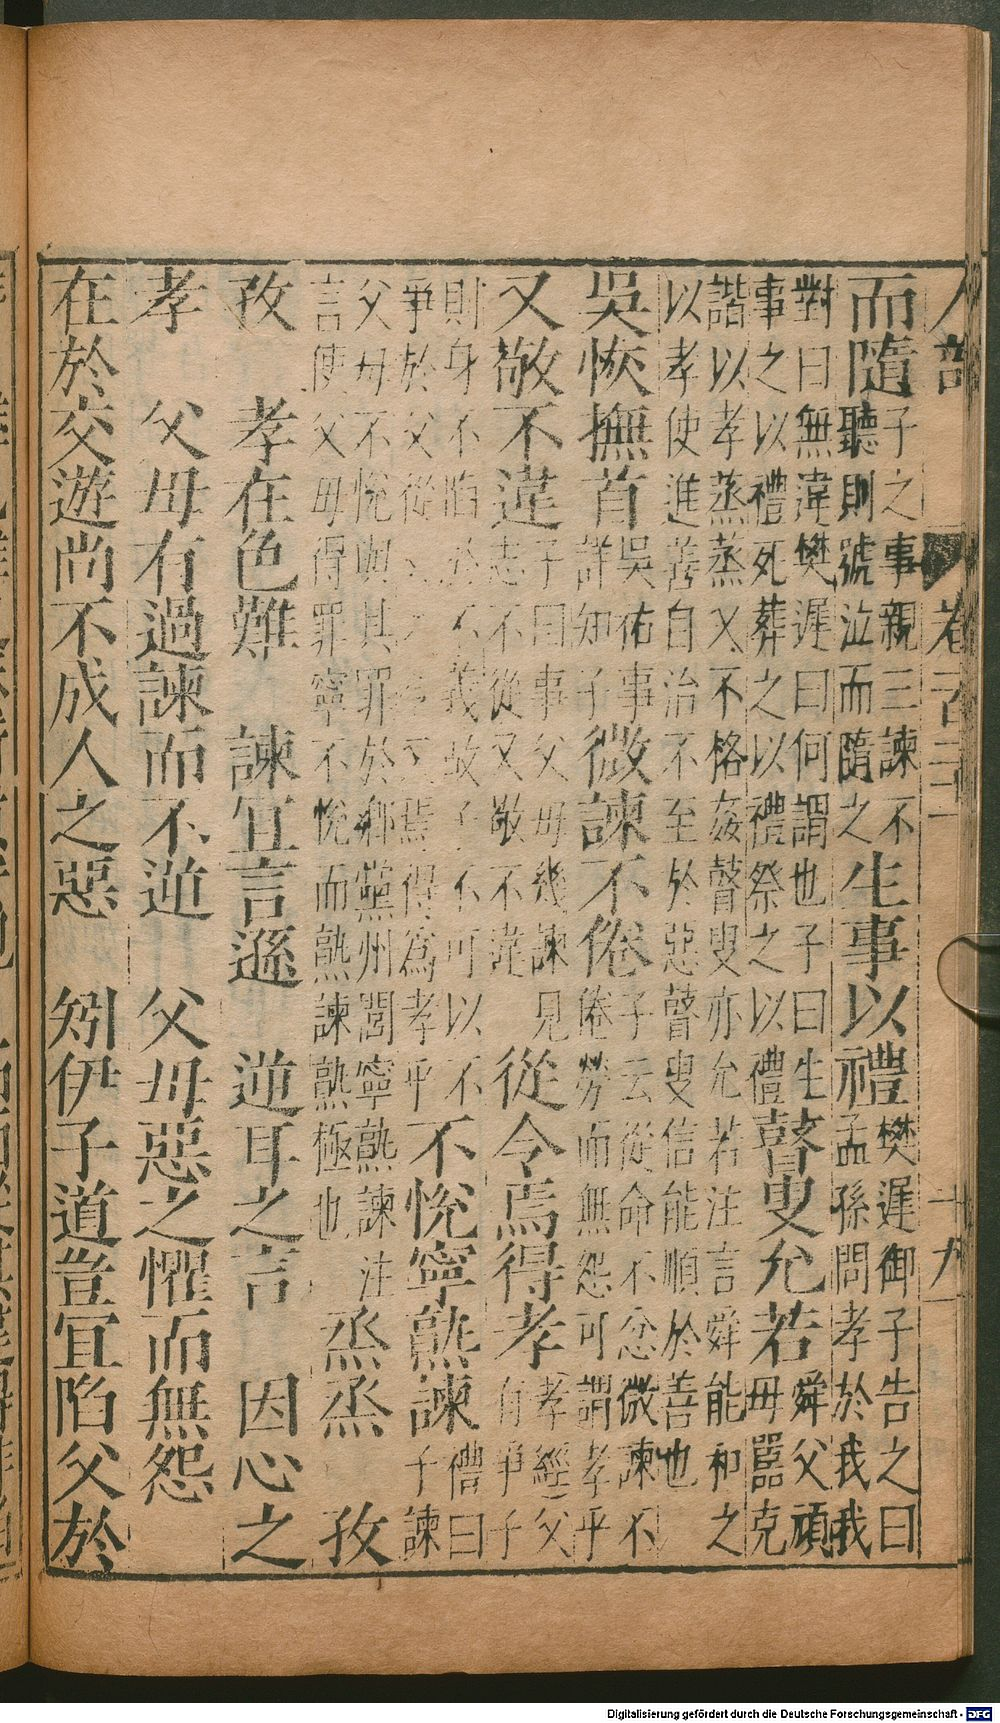 人部 卷百三十一 十九
而隨 子之事親三諫不
聽則號泣而隨之 生事以禮 樊遲御子告之曰
孟孫問孝於我我
對曰無違樊遲曰何謂也子曰生
事之以禮死葬之以禮祭之以禮 瞽叟允若 舜父頑
母嚚克
諧以孝蒸蒸乂不格姦瞽叟亦允若注言舜能和之
以孝使進善自治不至於惡瞽叟信能順於善也
吳恢撫首 吳佑事
詳知子 微諫不倦 子云從命不忿微諫不
倦勞而無怨可謂孝乎
又敬不違 子曰事父母幾諫見
志不從又敬不違 從令焉得孝 孝經父
有爭子
則身不陷於不義故子不可以不
爭於父從 焉得為孝乎 不悅寧熟諫 禮曰
子諫
父母不悅與其罪於鄉黨州閭寧熟諫注
言使父母得罪寧不悅而熟諫熟極也 烝烝 孜
孜 孝在色難 諫宜言遜 逆耳之言 因心之
孝 父母有過諫而不逆 父母惡之懼而無怨
在於交遊尚不成人之惡 矧伊子道豈宜陷父於
Digitalisierung gefördert durch die Deutsche Forschungsgemeinschaft - DFG